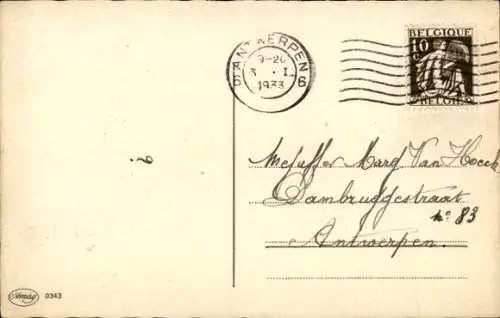 ANTWERPEN 6
9-20
3 · I
1933
BELGIQUE
10
BELGIË
Mejuffer Marg. Van Hoeck
Dambruggestraat
No 83
Antwerpen.
Amag 0343